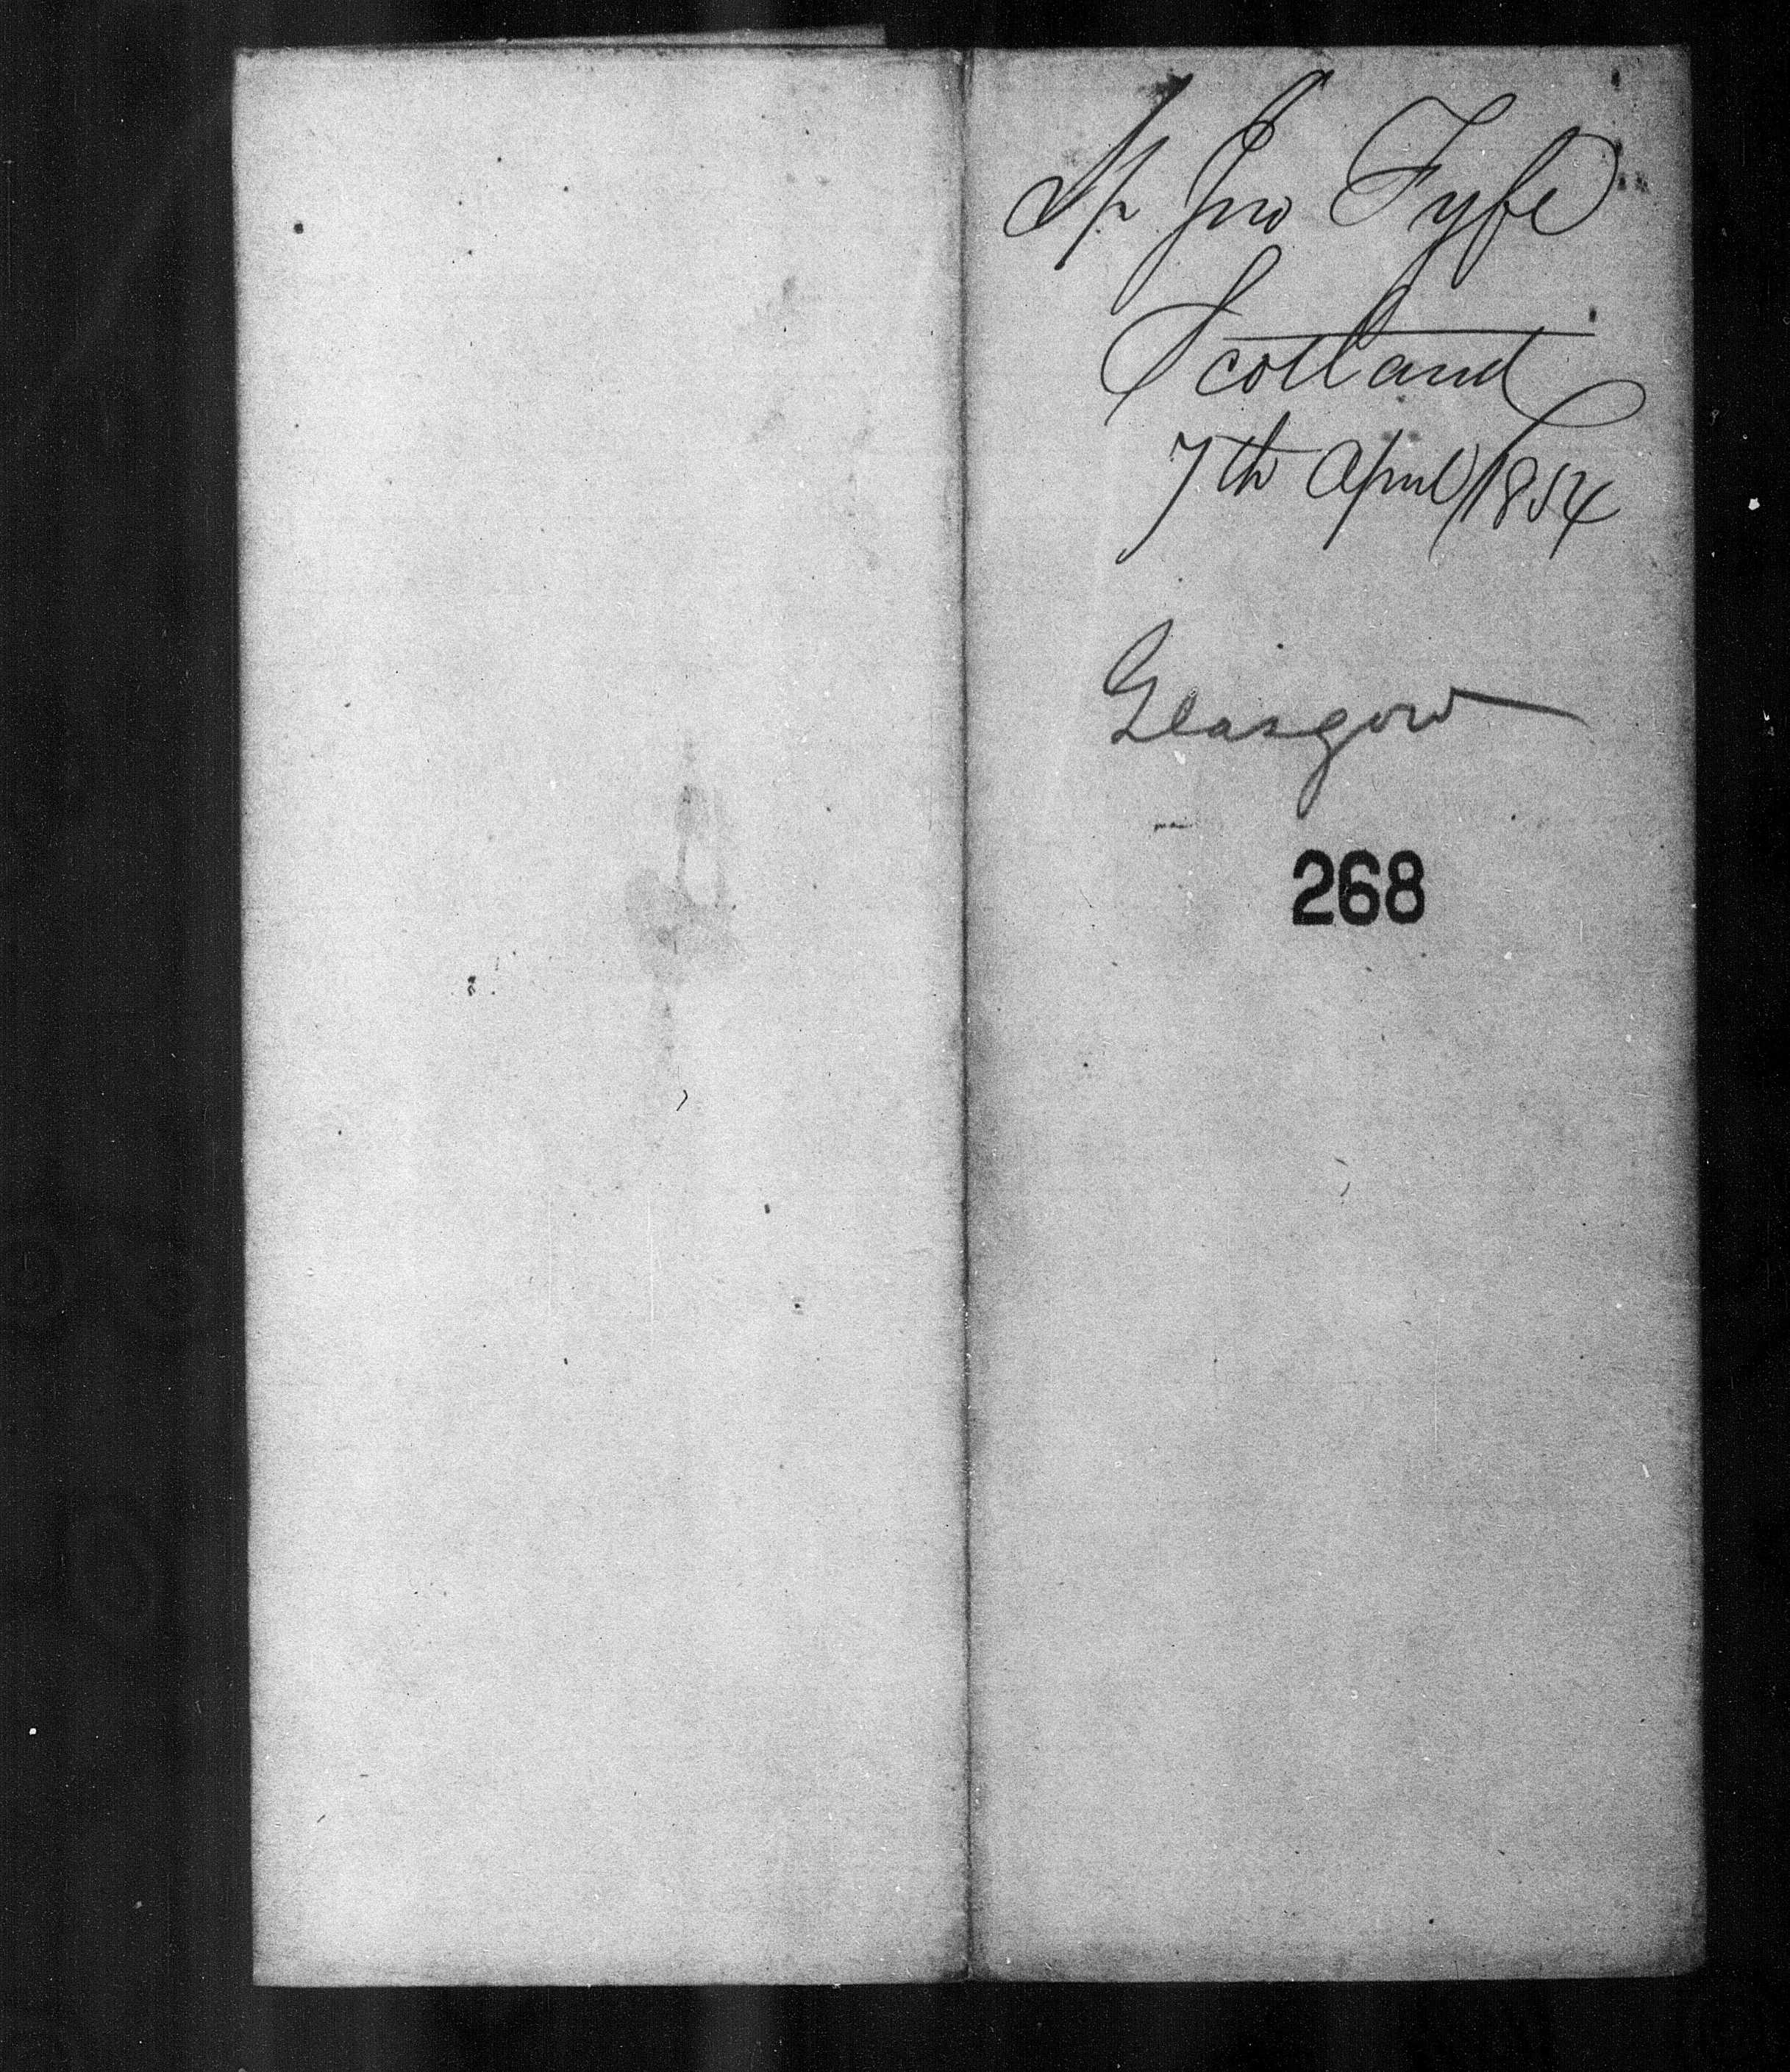 Jno Fyfe
Scotland
7th April 1854
Glasgow
268